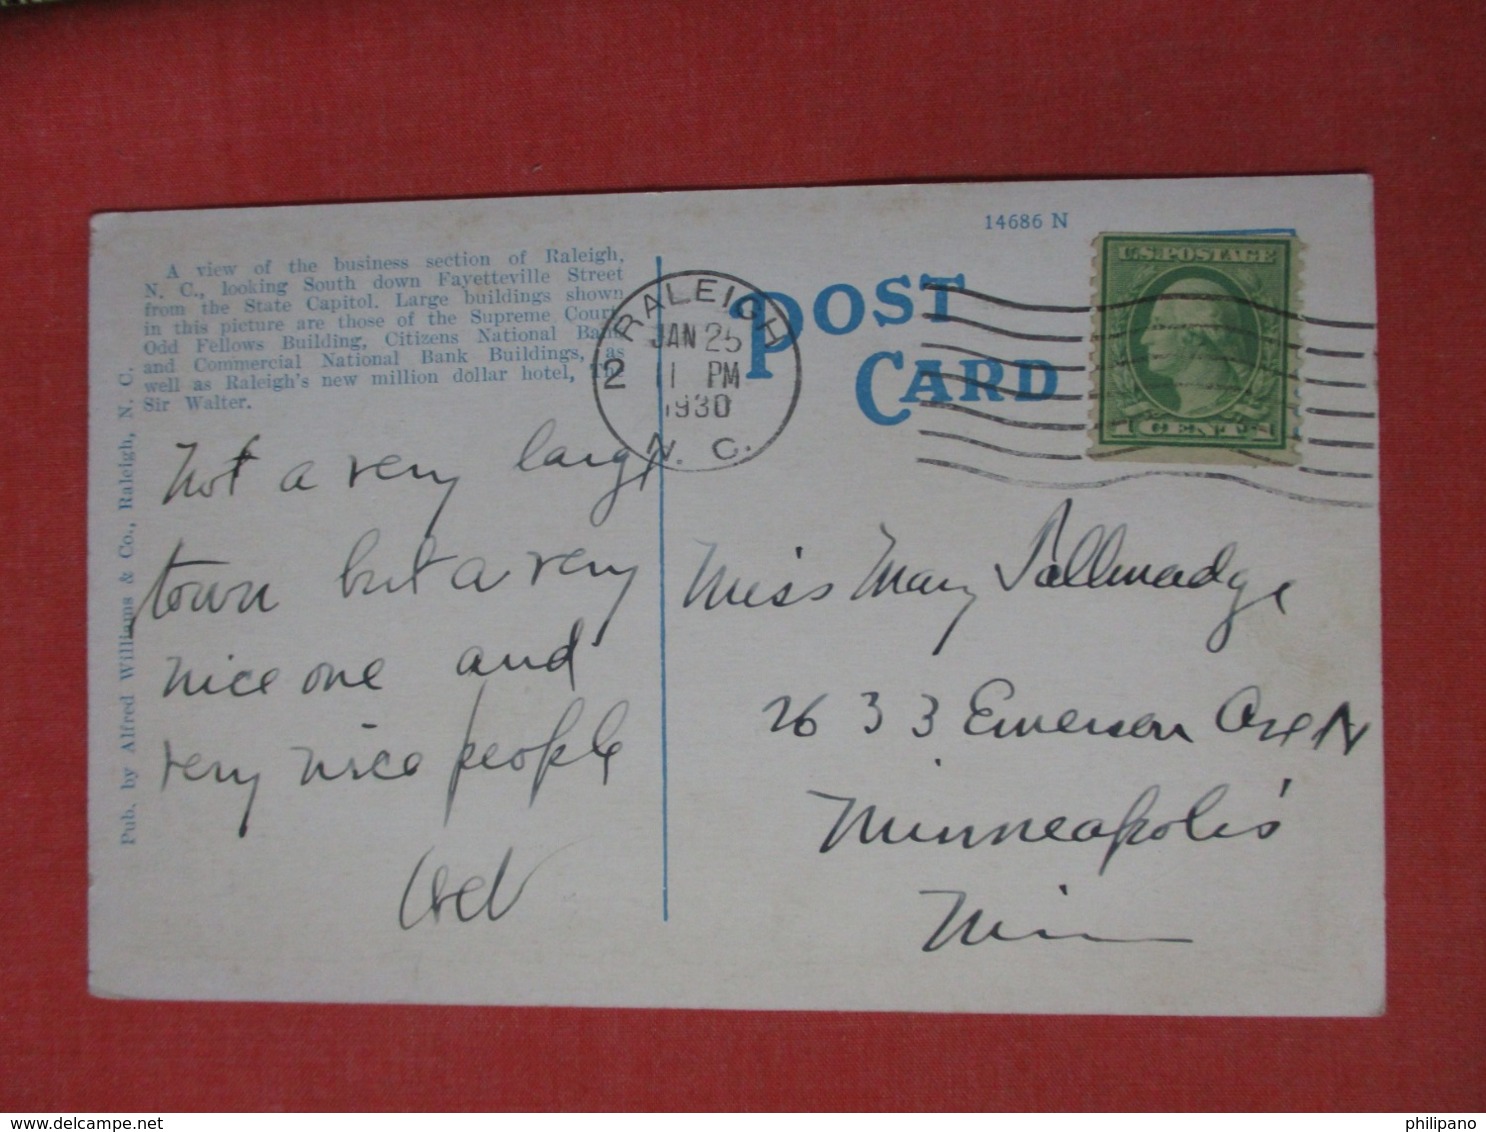 14686 N
A view of the business section of Raleigh,
N. C., looking South down Fayetteville Street
from the State Capitol. Large buildings shown
in this picture are those of the Supreme Court,
Odd Fellows Building, Citizens National Bank
and Commercial National Bank Buildings, as
well as Raleigh's new million dollar hotel, The
Sir Walter.
Pub. by Alfred Williams & Co., Raleigh, N. C.
POST
CARD
RALEIGH
JAN 25
2 11 PM
1930
N. C.
U.S. POSTAGE
1 CENT 1
Not a very large
town but a very
nice one and
very nice people
Miss Mary Tallmadge
2633 Emerson Ave N
Minneapolis
Minn
delcampe.net
philipano